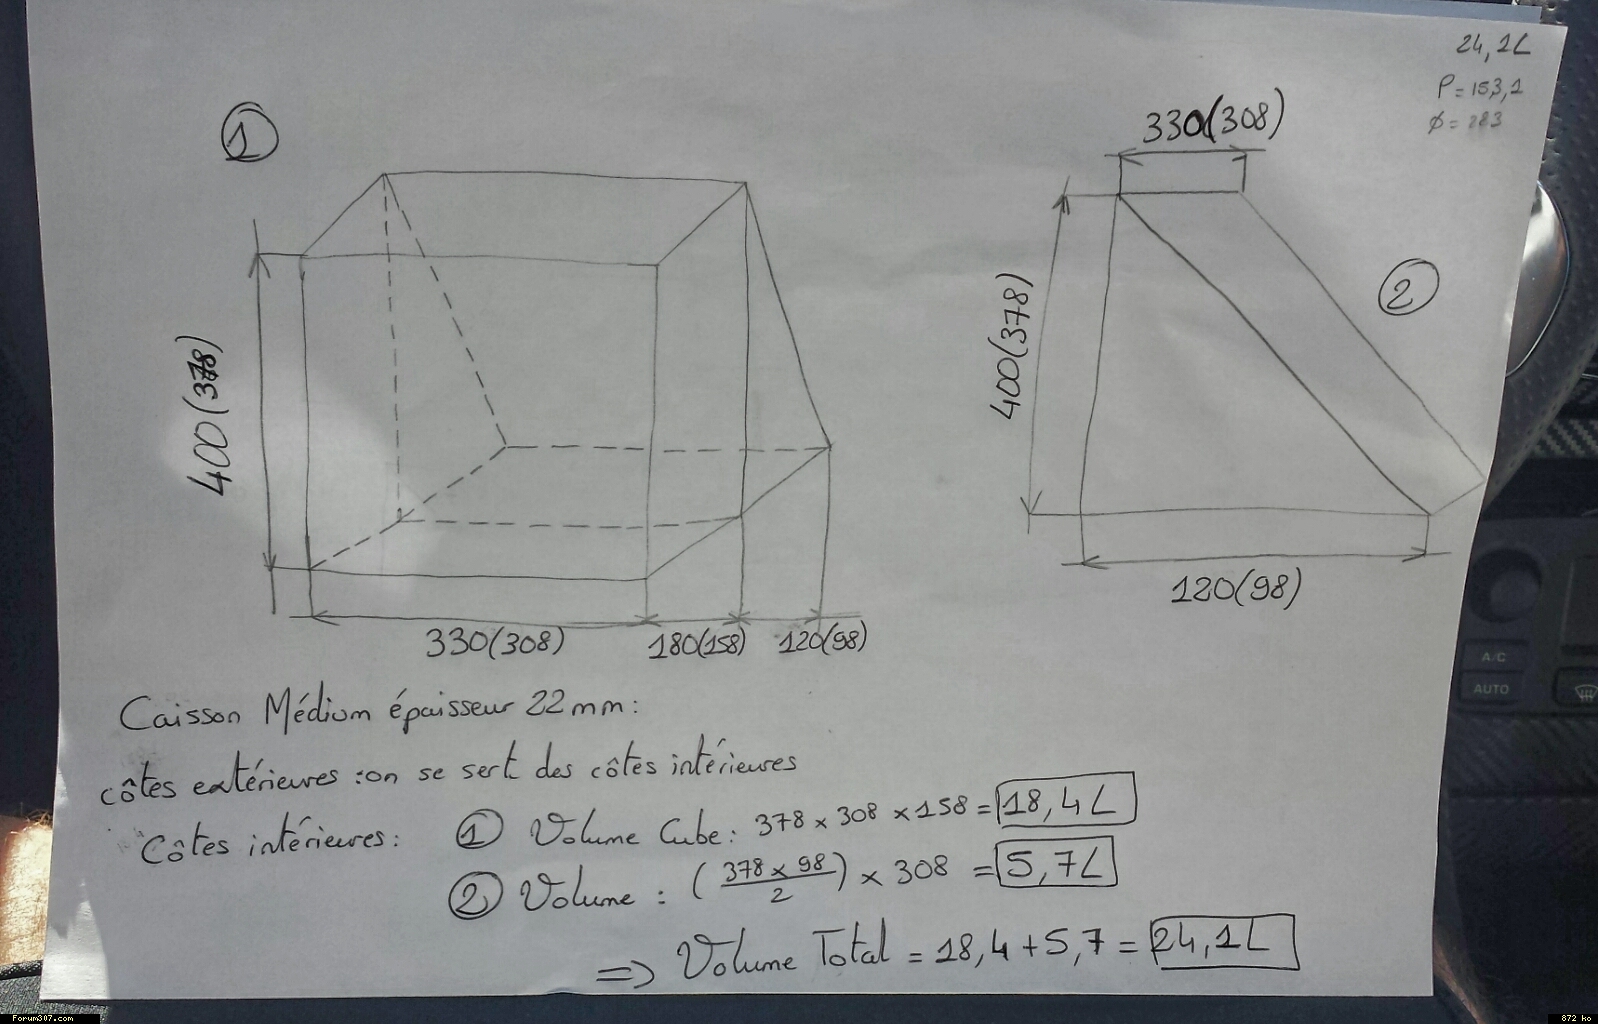 24,1L
P=153,1
①
330(308)
②
400(378)
400(378)
120(98)
330(308) 180(158) 120(98)
Caisson Médium épaisseur 22mm:
côtes extérieures :on se sert des côtes intérieures
Côtes intérieures: ① Volume Cube: 378 x 308 x 158 = 18,4L
② Volume : (378 x 98 / 2) x 308 = 5,7L
=> Volume Total = 18,4 + 5,7 = 24,1L
A/C
AUTO
Forum307.com
872 ko